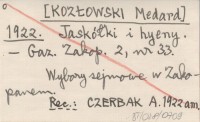 [KOZŁOWSKI Medard]
1922. Jaskółki i hyeny.
- Gaz. Zakop. 2, nr 33.
Wybory sejmowe w Zako-
panem.
Rec.: CZERBAK A. 1922 am.